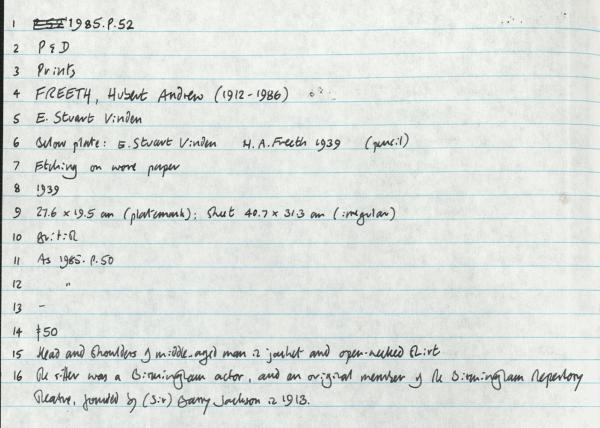 1 1985.P.52
2 P & D
3 Prints
4 FREETH, Hubert Andrew (1912-1986)
5 E. Stuart Vinden
6 Below plate: E. Stuart Vinden H. A. Freeth 1939 (pencil)
7 Etching on wove paper
8 1939
9 27.6 x 19.5 cm (platemark); Sheet 40.7 x 31.3 cm (irregular)
10 British
11 As 1985.P.50
12 "
13 -
14 £50
15 Head and shoulders of middle-aged man in jacket and open-necked shirt
16 The sitter was a Birmingham actor, and an original member of the Birmingham Repertory
Theatre, founded by (Sir) Barry Jackson in 1913.